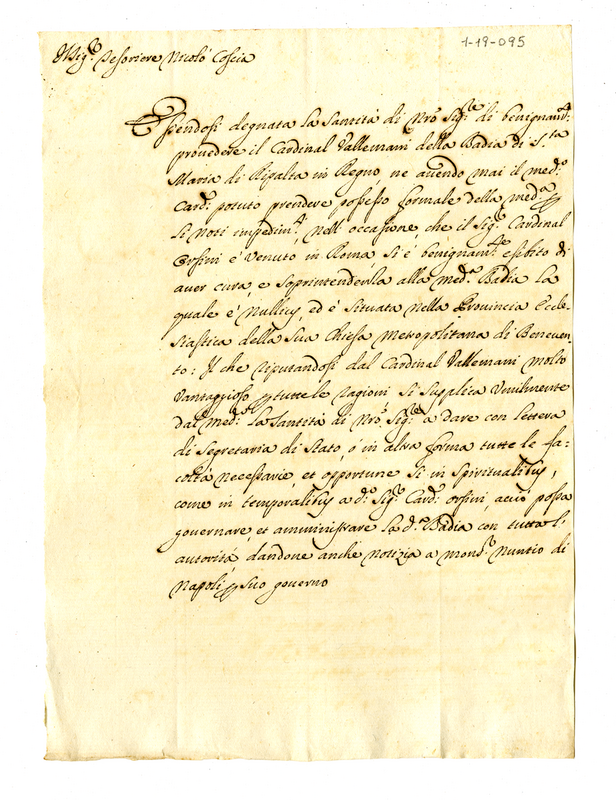 1-19-095
Sig.r Tesoriere Nicolò Coscia
Essendosi degnata la Santità di Nro Sig.re di benignam.te
provedere il Cardinal Vallemani della Badia di S.ta
Maria di Ripalta in Regno, ne avendo mai il med.o
Card.l potuto prendere possesso formale della med.a
li noti impedim.ti, nell'occasione, che il Sig.r Cardinal
Orsini è venuto in Roma, si è benignam.te esibito di
aver cura, e soprintendenza alla med.a Badia la
quale è Nullius, ed è situata nella Provincia Eccle-
siastica della sua Chiesa Metropolitana di Beneven-
to: Il che riputandosi dal Cardinal Vallemani molto
vantaggioso p tutte le ragioni, si supplica umilmente
dal med.o la Santità di Nro Sig.re a dare con lettera
di Segretaria di Stato, ò in altra forma tutte le fa-
coltà necessarie, et opportune sì in spiritualibus,
come in temporalibus a d.o Sig.r Card.l Orsini, acciò possa
governare, et amministrare la d.a Badia con tutta l'
autorità, dandone anche notizia a mons.r Nuntio di
Napoli p suo governo